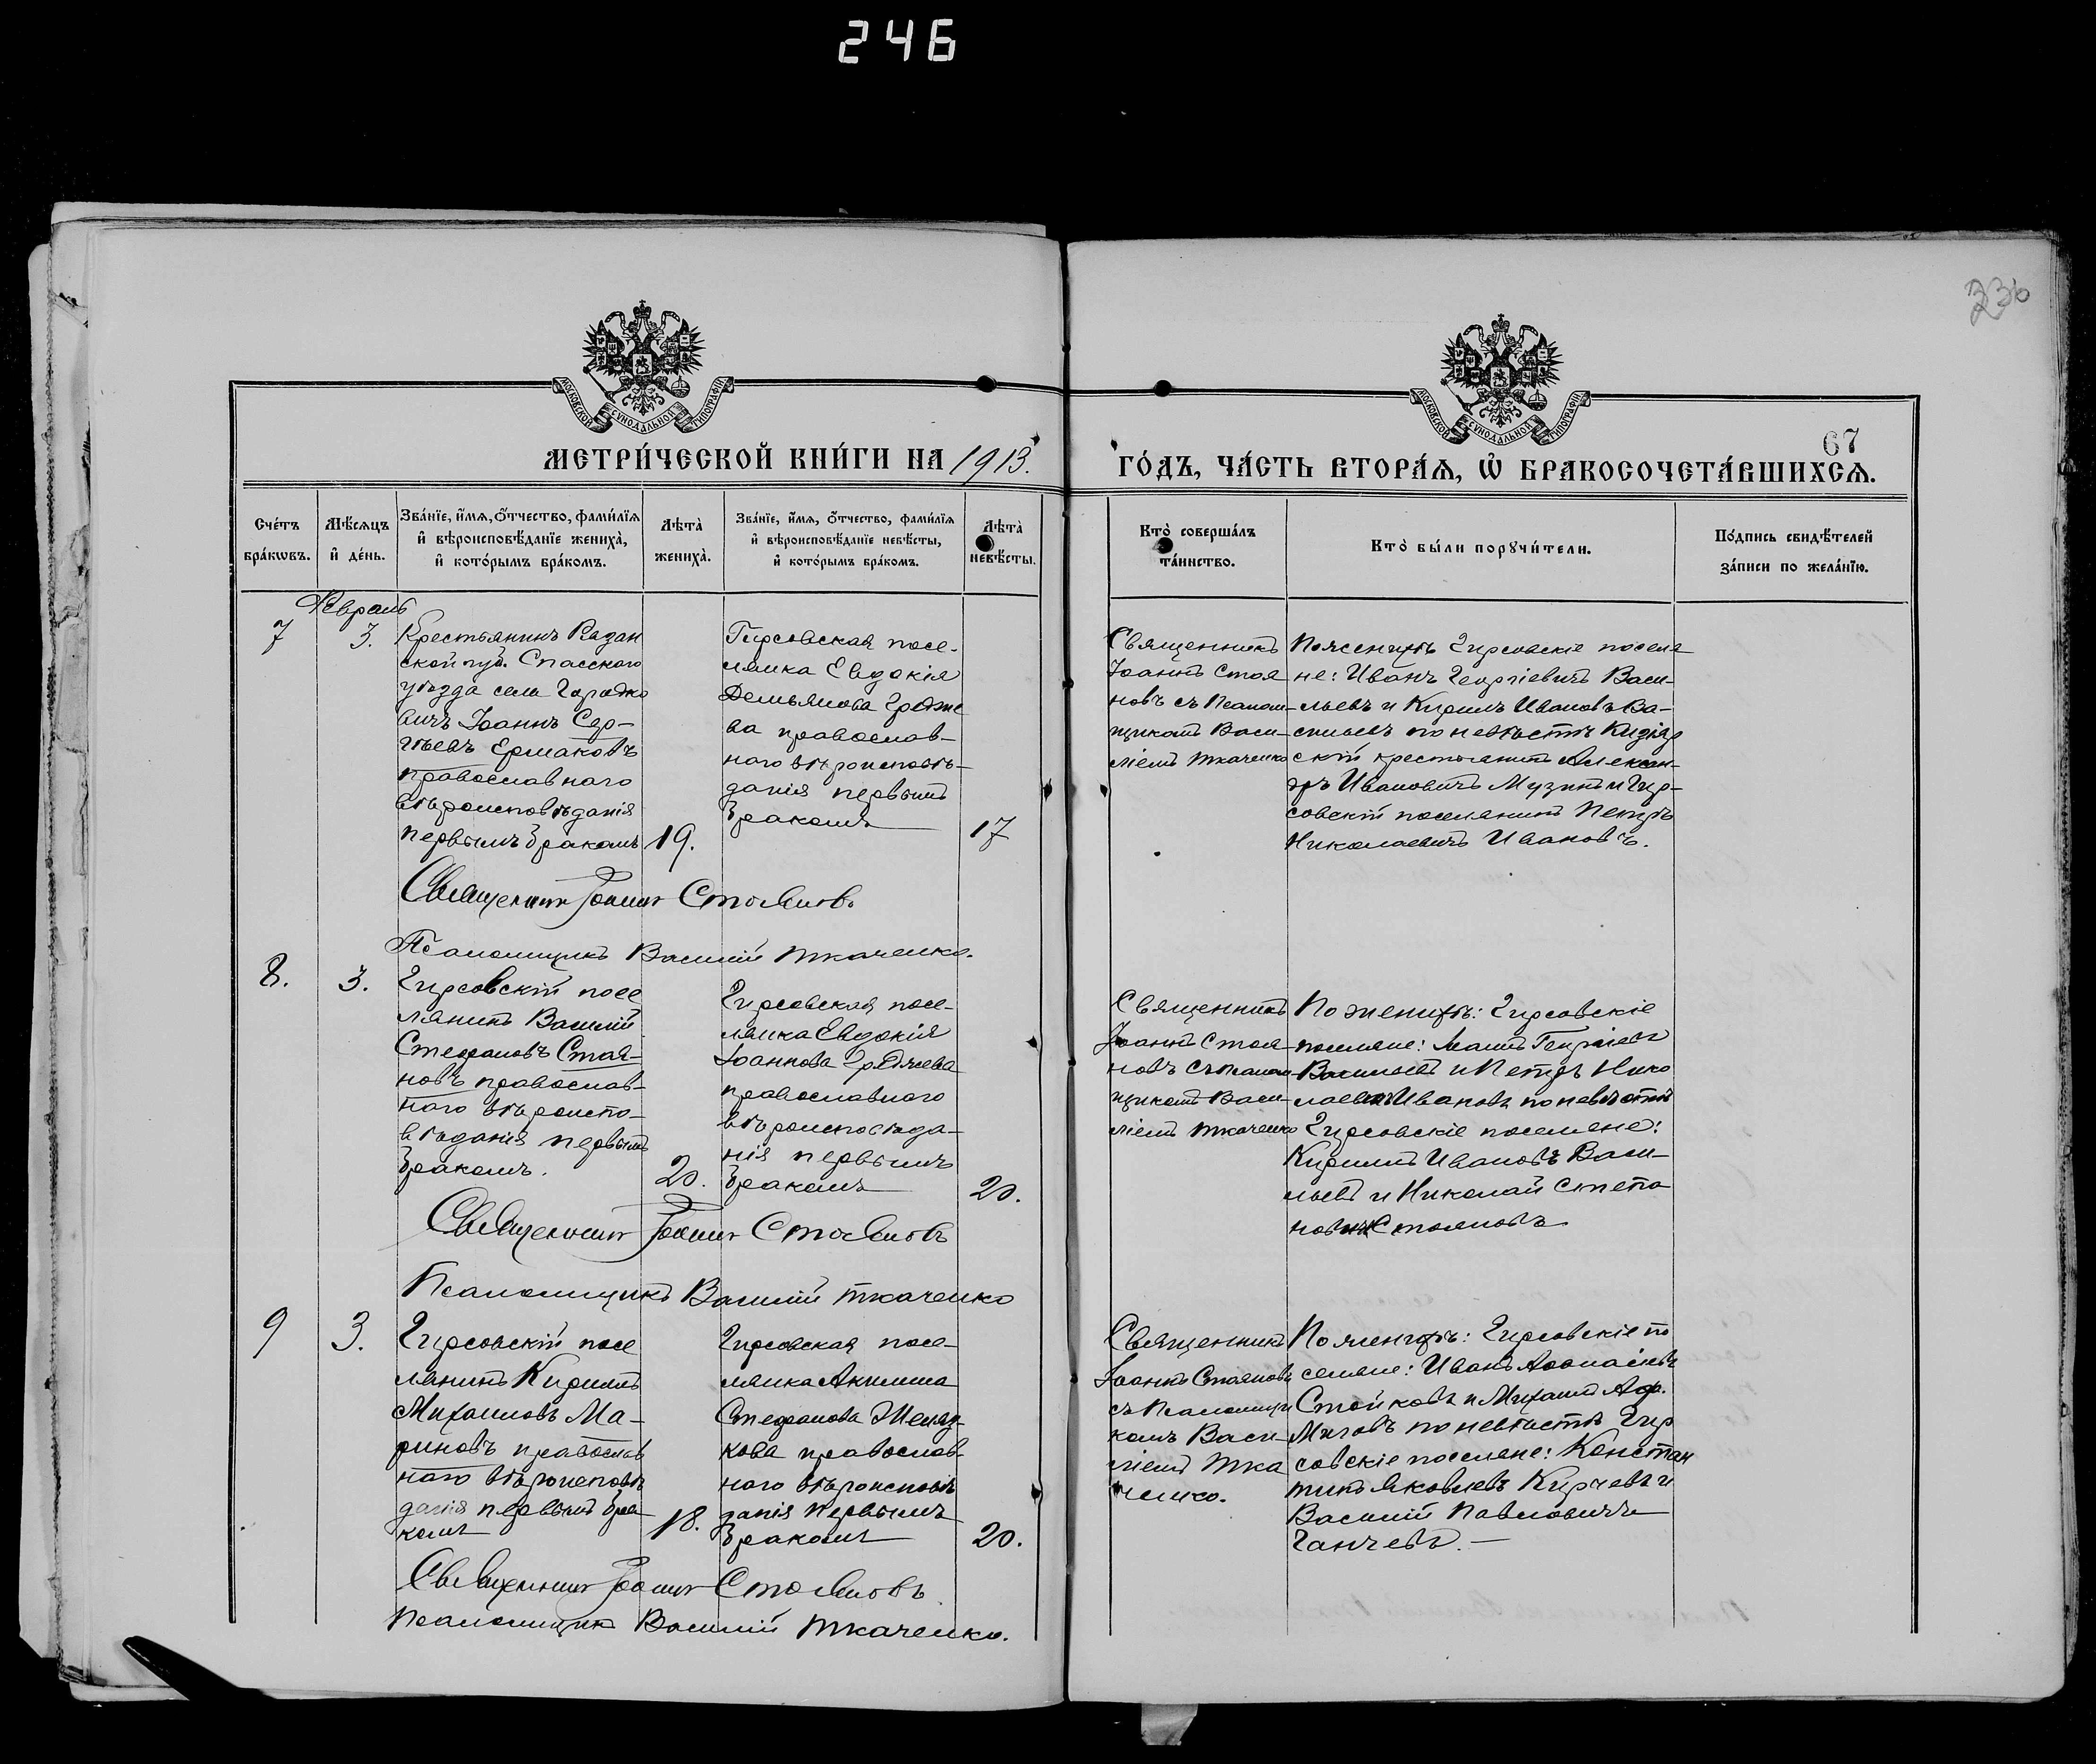 246
236
67
МОСКОВСКОЙ СУНОДАЛЬНОЙ ТИПОГРАФІИ
МОСКОВСКОЙ СУНОДАЛЬНОЙ ТИПОГРАФІИ
МЕТРИ́ЧЕСКОЙ КНИ́ГИ НА 1913.
ГО́ДЪ, ЧА́СТЬ ВТОРА́Ѧ, Ѽ БРАКОСОЧЕТА́ВШИХСѦ.
Сче́тъ бра́кѡвъ.
Мѣ́сѧцъ и҆ де́нь.
Зва́нїе, и҆́мѧ, ѻ҆́тчество, фами́лїѧ и҆ вѣроисповѣ́данїе жениха̀, и҆ кото́рымъ бра́комъ.
Лѣта̀ жениха̀.
Зва́нїе, и҆́мѧ, ѻ҆́тчество, фами́лїѧ и҆ вѣроисповѣ́данїе невѣ́сты, и҆ кото́рымъ бра́комъ.
Лѣта̀ невѣ́сты.
Кто̀ соверша́лъ та́инство.
Кто̀ бы́ли порꙋчи́тели.
По́дпись свидѣ́телей за́писи по жела́нїю.
Февраль
7
3.
Крестьянинъ Казан
ской губ. Спасского
уѣзда села
Іоаннъ Сер-
гѣевъ Ермаковъ
православнаго
вѣроисповѣданія
первымъ бракомъ
19.
Гирсовская посе-
лянка Евдокія
Демьянова
ва православ-
наго вѣроисповѣ-
данія первымъ
бракомъ
17
Священникъ
Іоаннъ Стоя
новъ съ псалом-
щикомъ Васи-
ліемъ Ткаченко
По женихѣ Гирсовскіе поселя
не: Иванъ Георгіевичъ Васи-
льевъ и Кирилъ Ивановъ Ва-
сильевъ по невѣстѣ
скій крестьянинъ Алексан-
дръ Ивановичъ Музыка и Гир-
совскій поселянинъ Петръ
Николаевичъ Ивановъ.
Священникъ Іоаннъ Стояновъ.
Псаломщикъ Василій Ткаченко.
8.
3.
Гирсовскій посе
лянинъ Василій
Стефановъ Стоя-
новъ православ-
наго вѣроиспо-
вѣданія первымъ
бракомъ.
20.
Гирсовская посе-
лянка Евдокія
Іоаннова
православнаго
вѣроисповѣда-
нія первымъ
бракомъ
20.
Священникъ
Іоаннъ Стоя-
новъ съ псалом-
щикомъ Васи-
ліемъ Ткаченко
По женихѣ: Гирсовскіе
поселяне: Георгіевъ
Васильевъ и Петръ Нико
лаевичъ Ивановъ по невѣстѣ
Гирсовскіе поселяне:
Кириллъ Ивановъ Васи-
льевъ и Николай Степа
новичъ Стояновъ
Священникъ Іоаннъ Стояновъ
Псаломщикъ Василій Ткаченко
9
3.
Гирсовскій посе
лянинъ Кириллъ
Михаиловъ Ма-
риновъ православ
наго вѣроисповѣ
данія первымъ бра
комъ
18.
Гирсовская посе-
лянка Акилина
Стефанова Желяз-
кова православ-
наго вѣроисповѣ
данія первымъ
бракомъ
20.
Священникъ
Іоаннъ Стояновъ
съ псаломщи
комъ Васи-
ліемъ Тка
ченко.
По женихѣ: Гирсовскіе по
селяне: Иванъ Аѳанасіевъ
Стойковъ и Михаилъ
по невѣстѣ Гир
совскіе поселяне: Констан
тинъ Яковлевъ Курчевъ и
Василій Павловичъ
Ганчевъ.
Священникъ Іоаннъ Стояновъ
Псаломщикъ Василій Ткаченко.